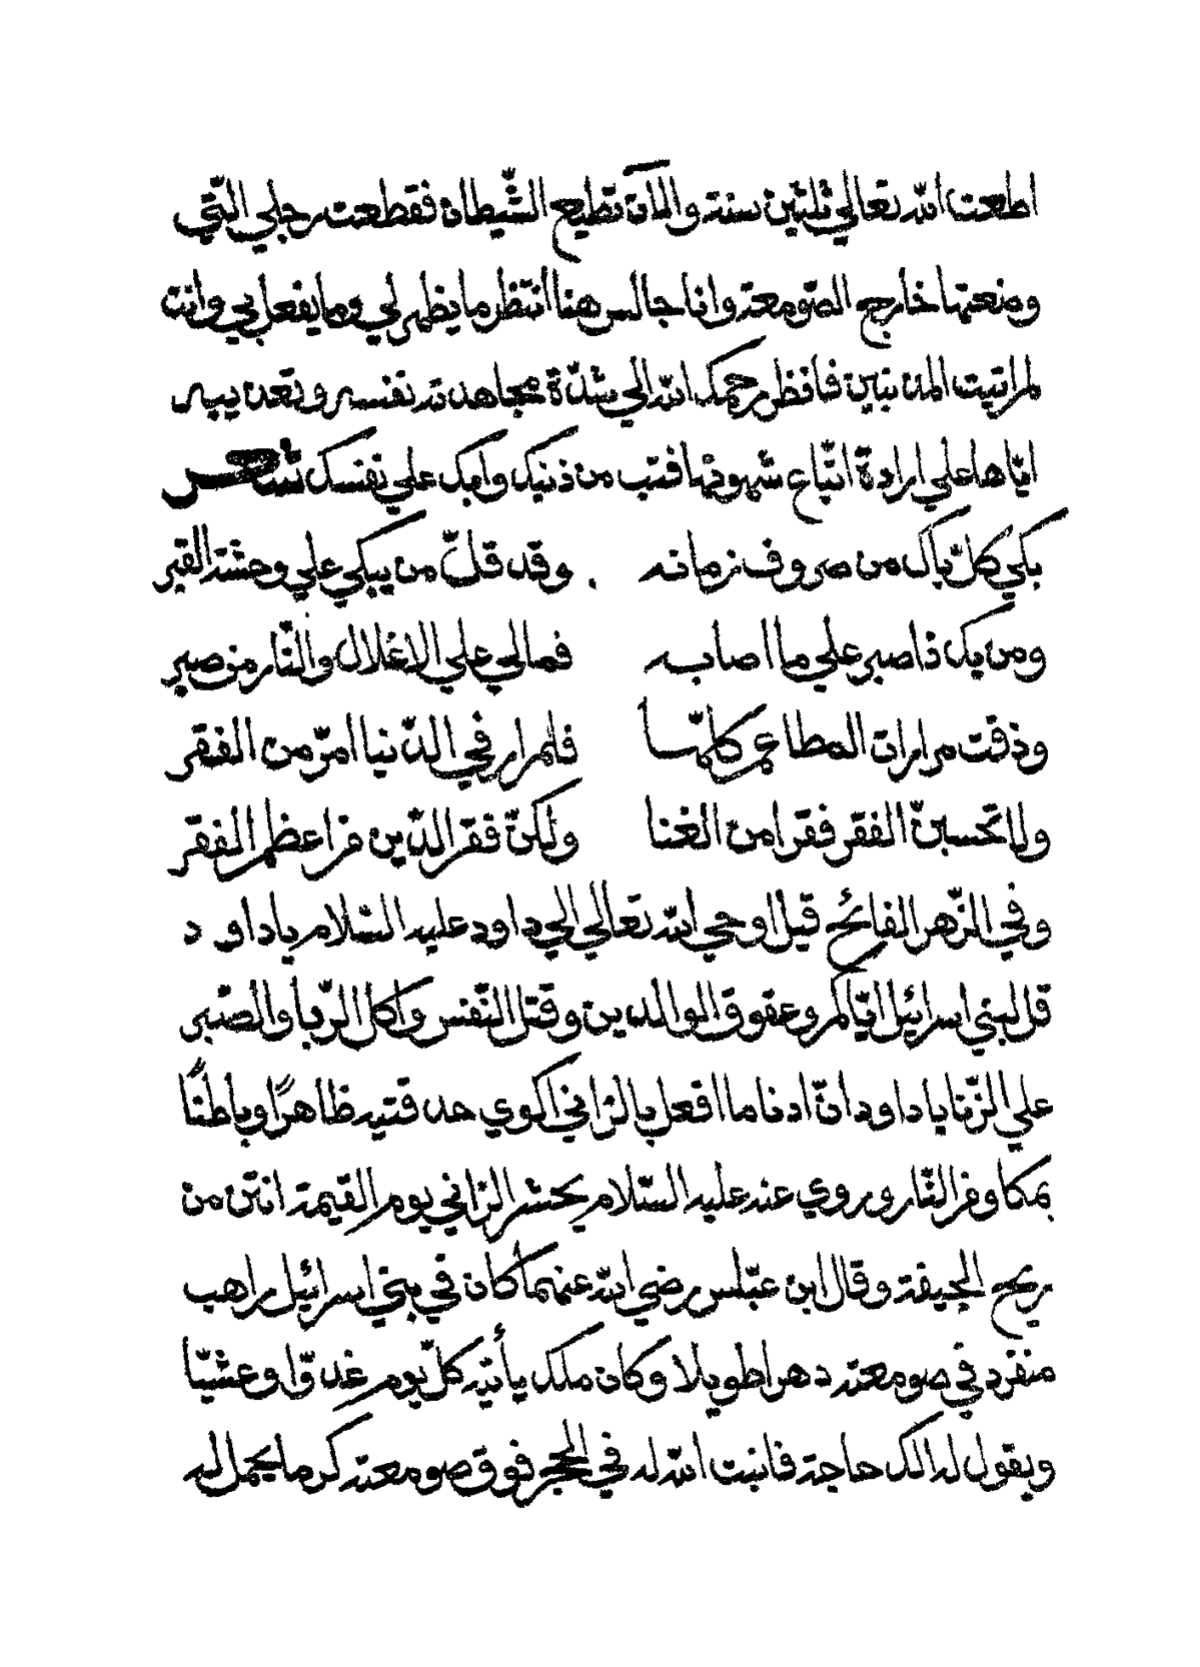 اطعت الله تعالي ثلثين سنة والآن تطيع الشّيطان فقطعت رجلي الّتي
وضعتها خارج الصّومعة وانا جالس هنا انتظر ما يظهر لي وما يفعل بي وانت
لم اتيت المذنبين فانظر رحمك الله الي شدّة مجاهدته نفسه وتعذيبه
ايّاها علي ارادة اتّباع شهوتها فتب من ذنبك وابك علي نفسك شعر
بكي كلّ باك من صروف زمانه . وقد قلّ من يبكي علي وحشة القبر
ومن يك ذا صبر علي ما اصابه فمالي علي الاغلال والنّار من صبر
وذقت مرارات المطاعم كلّها فلم ار في الدّنيا امرّ من الفقر
ولا تحسبنّ الفقر فقرا من الغنا ولكنّ فقر الدّين من اعظم الفقر
وفي الزّهر الفائح قيل اوحي الله تعالي الي داود عليه السّلام يا داود
قل لبني اسرائيل ايّاكم وعقوق الوالدين وقتل النّفس واكل الرّبا والصّبر
علي الزّنا يا داود انّ ادنا ما افعل بالزّاني اكوي حدقتيه ظاهرًا وباطنًا
بمكاو من النّار وروي عنه عليه السّلام يحشر الزاني يوم القيمة انتن من
ريح الجيفة وقال ابن عبّاس رضي الله عنهما كان في بني اسرائيل راهب
منفرد في صومعته دهرا طويلا وكان ملك يأتيه كلّ يوم غدوّا وعشيّا
ويقول له الك حاجة فانبت الله له في الحجر فوق صومعته كرما يحمل له